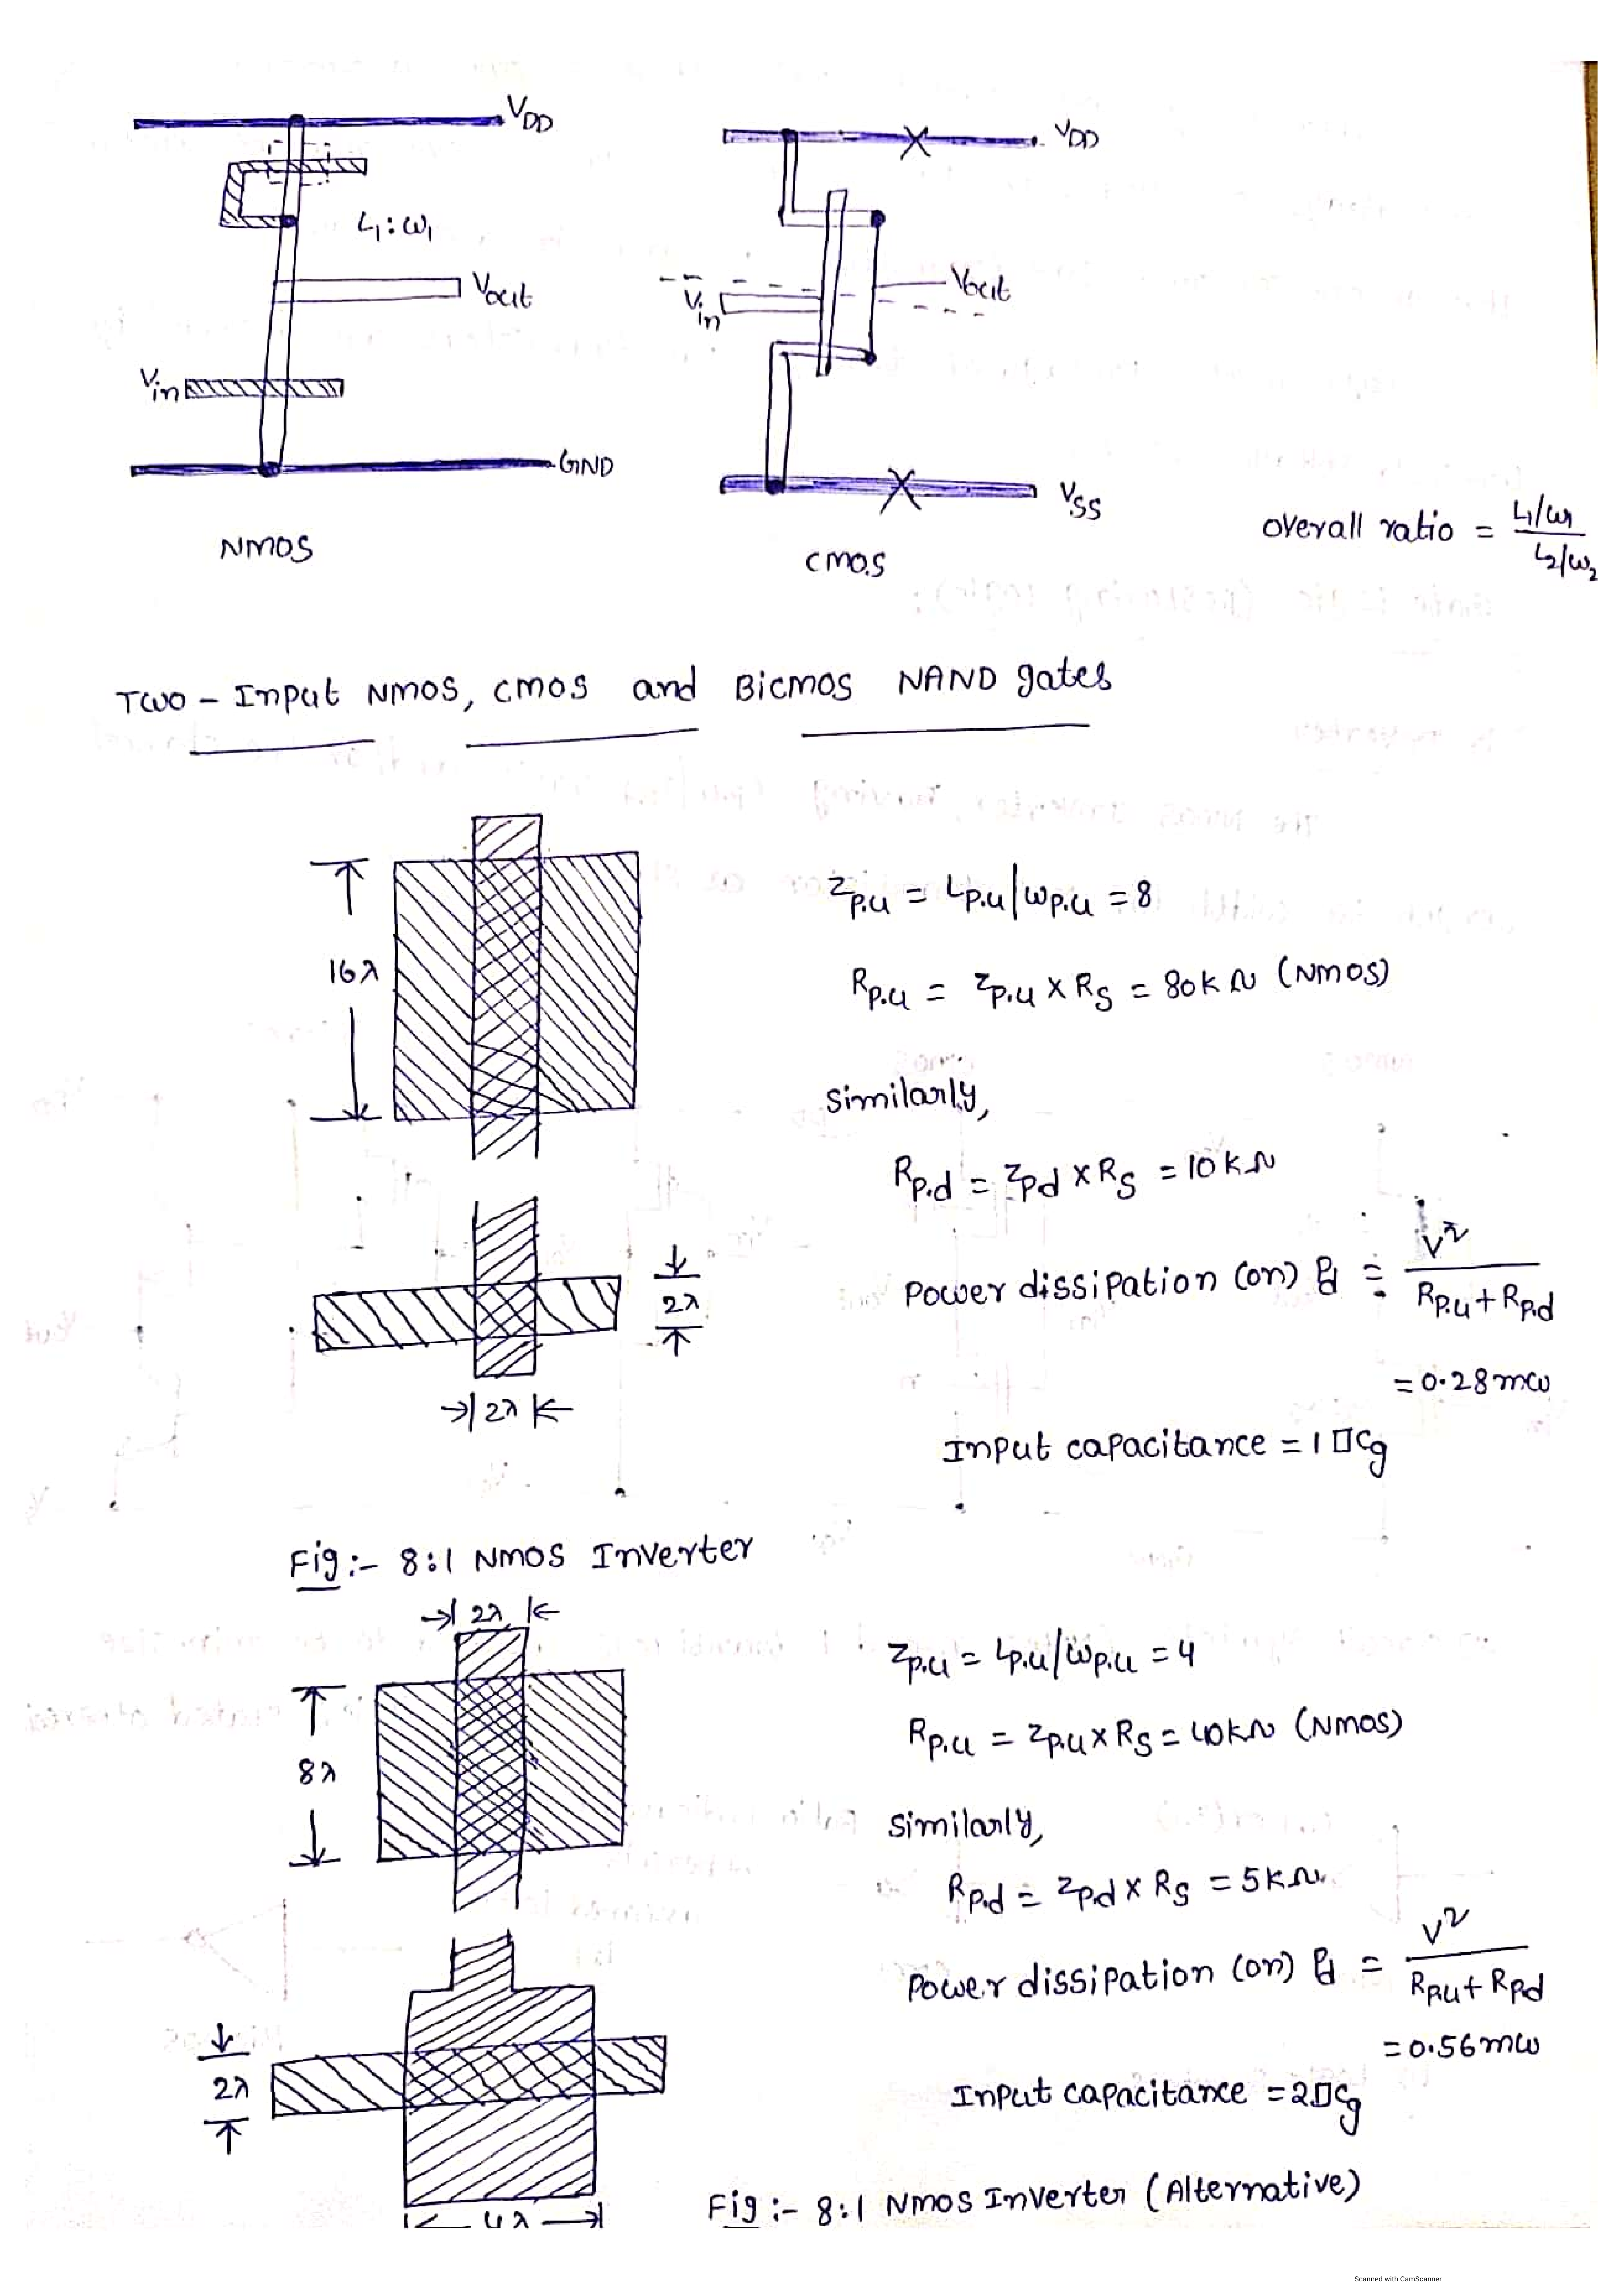 VDD
VDD
L1:ω1
Vout
Vin
Vout
Vin
GND
VSS
NMOS
CMOS
overall ratio = L1/ω1 / L2/ω2
Two-Input NMOS, CMOS and BiCMOS NAND gates
16λ
Zp.u = Lp.u/ωp.u = 8
Rp.u = Zp.u x Rs = 80kΩ (NMOS)
Similarly,
Rp.d = Zpd x Rs = 10kΩ
2λ
Power dissipation (on) Pd = V² / Rp.u + Rp.d
= 0.28mω
2λ
Input capacitance = 1□Cg
Fig:- 8:1 NMOS Inverter
2λ
8λ
Zp.u = Lp.u/ωp.u = 4
Rp.u = Zp.u x Rs = 40kΩ (NMOS)
Similarly,
Rp.d = Zp.d x Rs = 5kΩ
Power dissipation (on) Pd = V² / Rp.u + Rp.d
= 0.56mω
2λ
Input capacitance = 2□Cg
4λ
Fig:- 8:1 NMOS Inverter (Alternative)
Scanned with CamScanner